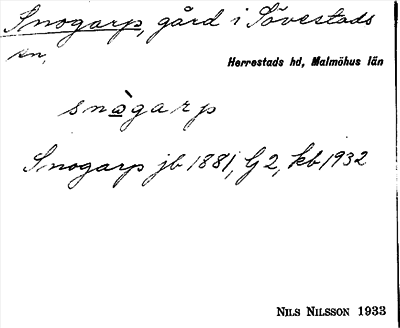 Snogarp, gård i Sövestads
sn,
Herrestads hd, Malmöhus län
snògarp
Snogarp jb 1881, G 2, kb 1932
NILS NILSSON 1933